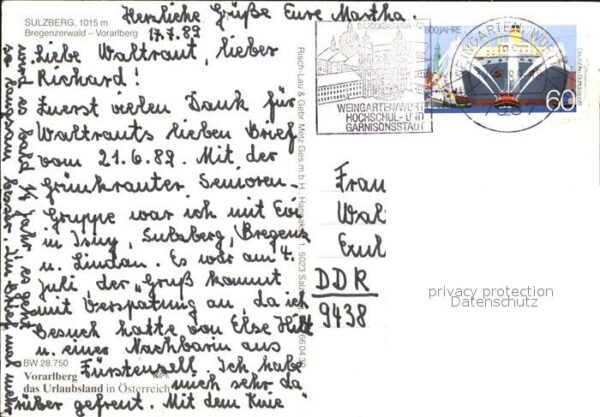 Herzliche Grüße Eure Martha.
SULZBERG, 1015 m
Bregenzerwald – Vorarlberg
17.7.89
Liebe Waltraut, lieber
Richard!
Zuerst vielen Dank für
Waltrauts lieben Brief
vom 21.6.89. Mit der
Grünkrauter Senioren-
Gruppe war ich mit Evi
in Isny, Sulzberg, Bregenz
u. Lindau. Es war am 4.
Juli, der „Gruß" kommt
mit Verspätung an, da ich
Besuch hatte von Else Hilt
u. einer Nachbarin aus
Fürstenzell. Ich habe
mich sehr da
über gefreut. Mit dem Knie
wird es bald 1/4 Jahr, es geht
so langsam besser. Im Brief mal mehr
BW 28.750
Vorarlberg
das Urlaubsland in Österreich
Risch-Lau & Gebr. Metz Ges.m.b.H.
BAROCKBASILIKA
WEINGARTEN/WÜRTT
HOCHSCHUL- UND
GARNISONSSTADT
WEINGARTEN, WÜRTT
800 JAHRE
60
Frau
Wal
DDR
9438
privacy protection
Datenschutz